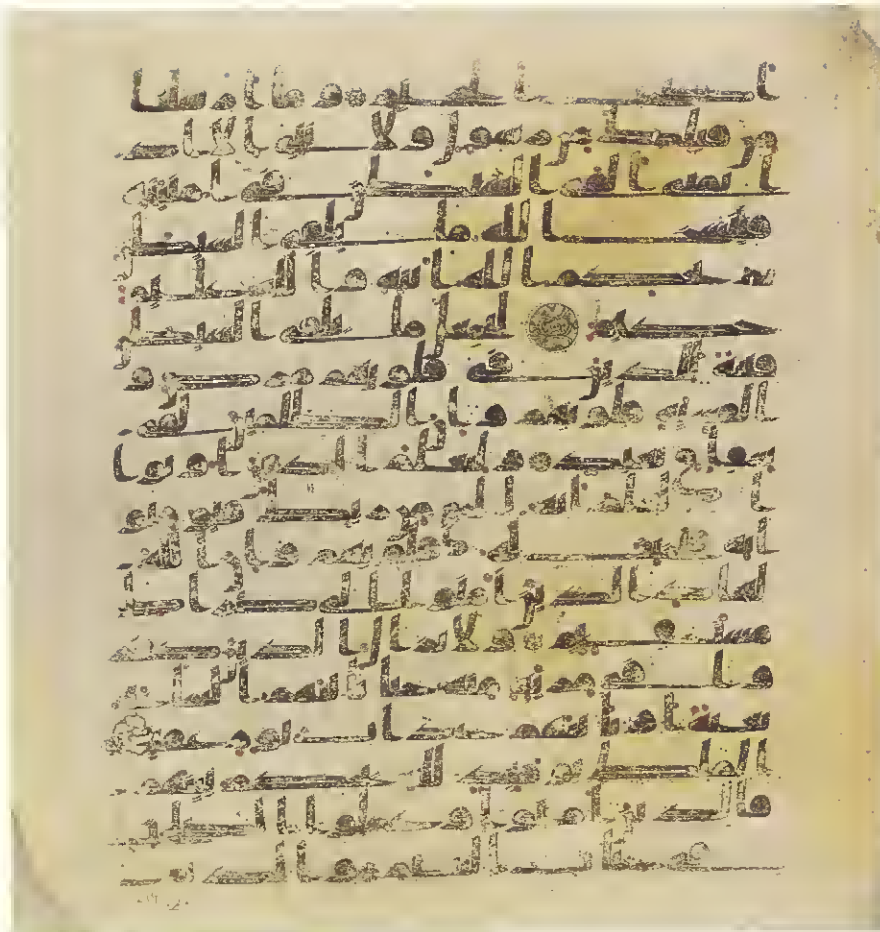 اصحب الجحيم وما ارسلنا
من قبلك من رسول ولا نبي الا اذ
ا تمنى القى الشيطن في امنيته
فينسخ الله ما يلقي الشيطن
ثم يحكم الله ايته والله عليم
حكيم ليجعل ما يلقي الشيطن
فتنة للذين في قلوبهم مرض و
القسية قلوبهم وان الظلمين لفي
شقاق بعيد وليعلم الذين اوتوا
العلم انه الحق من ربك فيومنوا
به فتخبت له قلوبهم وان الله
لهاد الذين امنوا الى صرط
مستقيم ولا يزال الذين كفر
وا في مرية منه حتى تاتيهم الساعة
بغتة او ياتيهم عذاب يوم عقيم
الملك يومئذ لله يحكم بينهم
فالذين امنوا وعملوا الصلحت
في جنت النعيم والذين